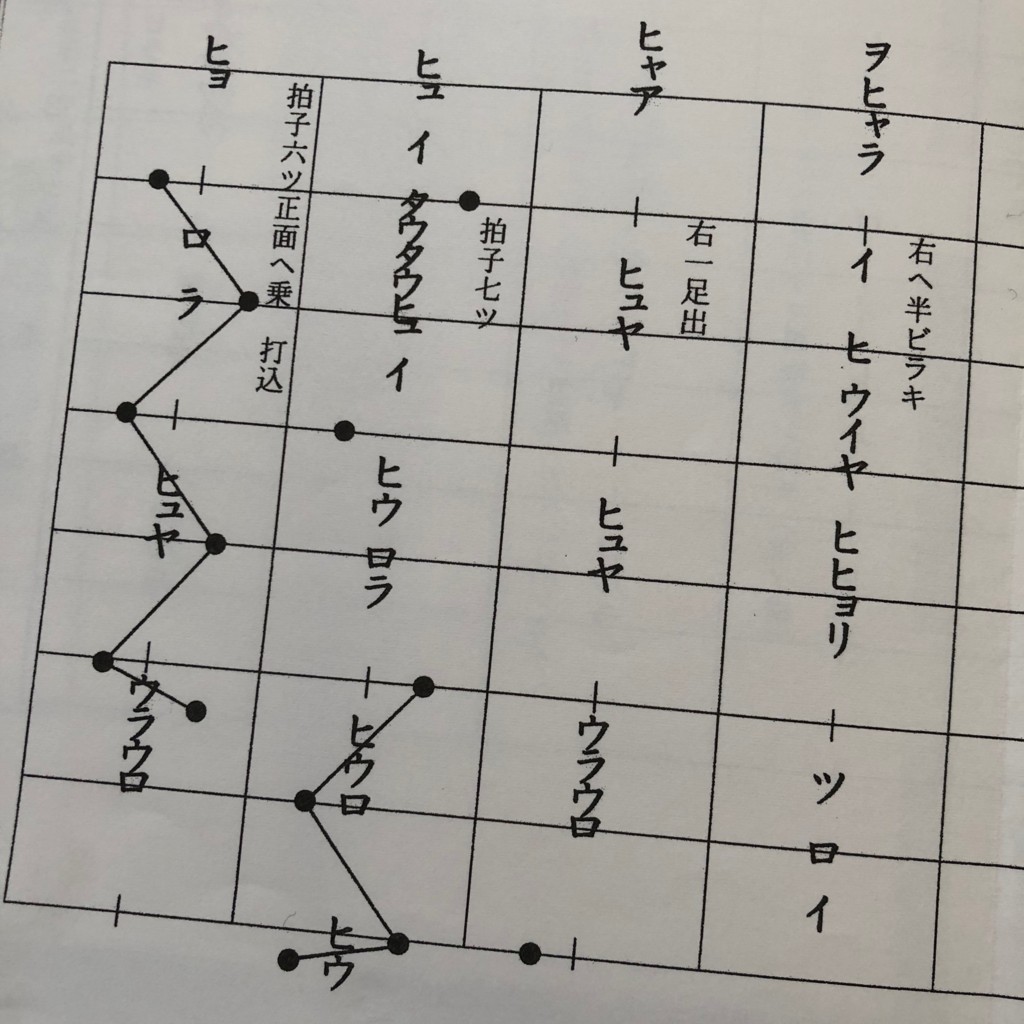 ヲヒャラ
イ
ヒ
ウイヤ
ヒヒョリ
ツ
ロ
イ
右へ半ビラキ
ヒャア
ヒュヤ
ヒュヤ
ウラウロ
右一足出
ヒュ
イ
タウタウヒュ
イ
ヒウ
ロラ
ヒウロ
ヒウ
拍子七ツ
ヒョ
ロ
ラ
ヒュヤ
ウラウロ
拍子六ツ
正面へ乗
打込